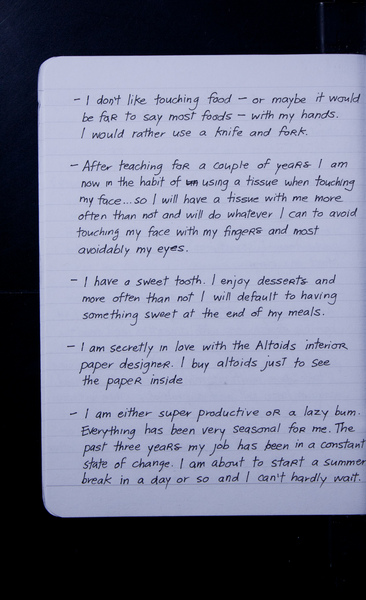 - I don't like touching food - or maybe it would
be faR to say most foods - with my hands.
I would rather use a knife and foRk.
- AfteR teaching foR a couple of yeaRs I am
now in the habit of using a tissue when touching
my face... so I will have a tissue with me more
often than not and will do whatever I can to avoid
touching my face with my fingeRs and most
avoidably my eyes.
- I have a sweet tooth. I enjoy desseRts and
more often than not I will default to having
something sweet at the end of my meals.
- I am secretly in love with the Altoids interioR
paper designeR. I buy altoids jusT to see
the papeR inside
- I am either super productive oR a lazy bum.
Everything has been very seasonal foR me. The
past three yeaRs my job has been in a constant
state of change. I am about to staRt a summer
break in a day or so and I can't hardly wait.